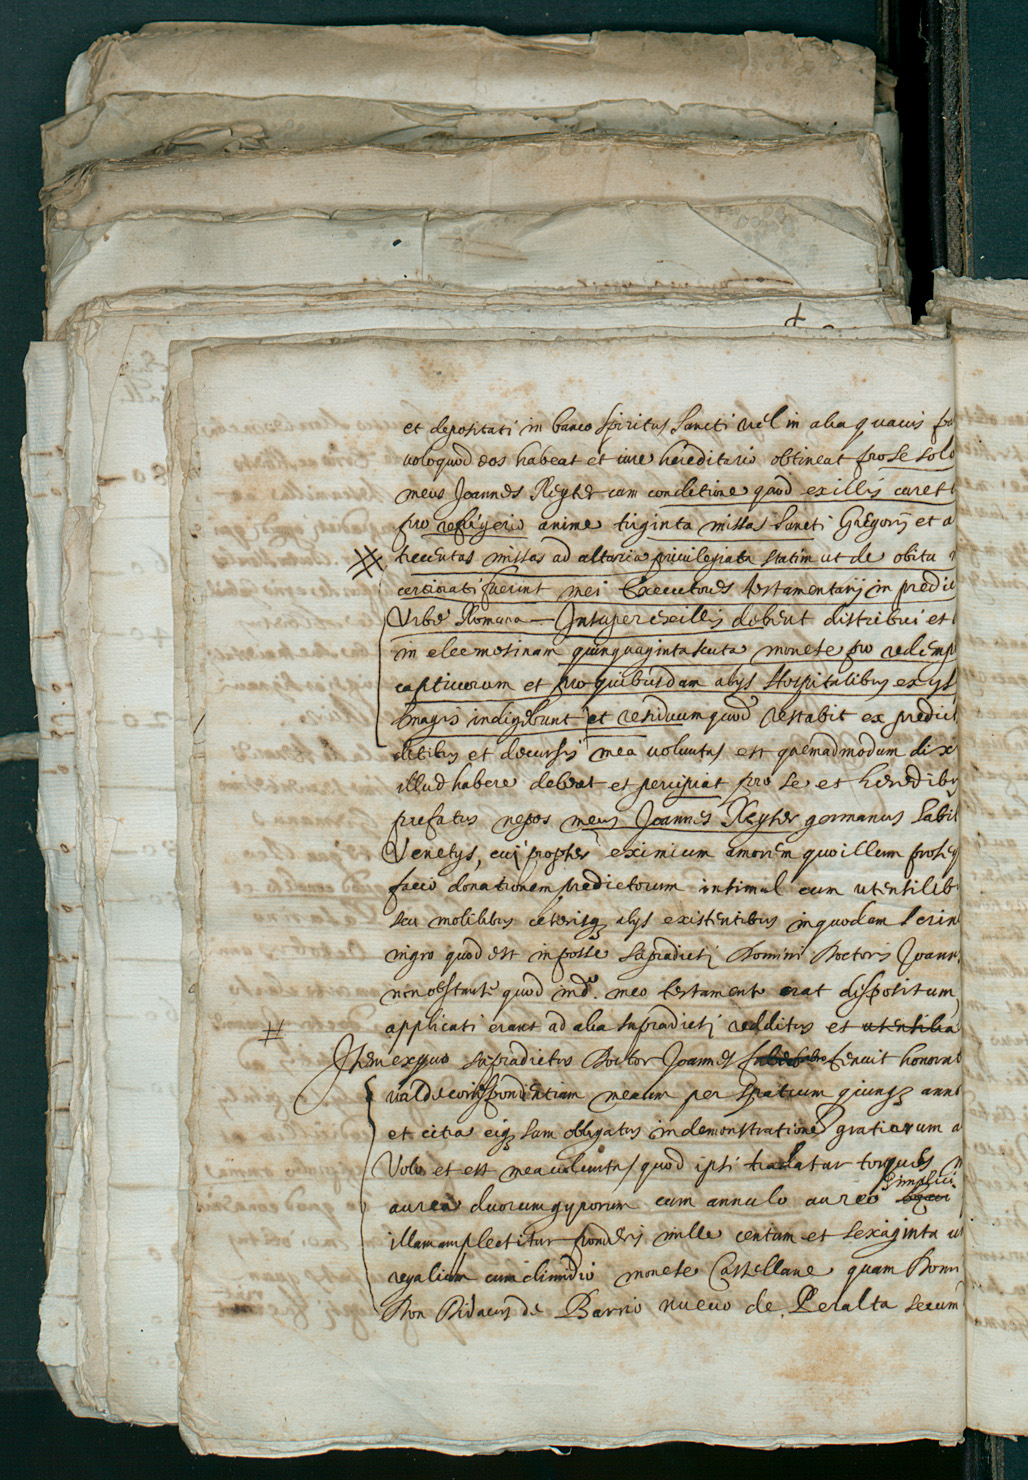 et depositati in banco Spiritus Sancti vel in alia quavis
volo quod eos habeat et iure hereditario obtineat pro se solo
meus Joannes Reyter cum conditione quod ex illis
pro refrigerio anime triginta missas Sancti Gregorij et a
trecentas missas ad altaria privilegiata statim ut de obitu
certiorati fuerint mei Executores testamentarij in predic
Urbe Romana — Insuper ex illis debent distribui et
in eleemosinam quinquaginta scuta monete pro redemp
captivorum et pro quibusdam alys Hospitalibus ex ys
magis indigebunt et residuum quod restabit ex predict
debitis et decursis mea voluntas est quemadmodum dix
illud habere debeat et percipiat pro se et heredibu
prefatus nepos meus Joannes Reyter germanus habit
Venetys, cui propter eximium amorem quo illum proseq
facio donationem predictorum insimul cum utensilib
seu mobilibus ceterisq alys existentibus in quodam scrin
nigro quod est in posse supradicti Domini Doctoris Joann
non obstante quod in dº. meo testamento erat dispositum
applicati erant ad alia supradicti redditus et utensilia
Item ex quo supradictus Doctor Joannes tenuit honorat
valde correspondentiam mecum per spatium quinq anno
et citra eiq sum obligatus in demonstratione gratiarum a
Volo et est mea voluntas quod ipsi tradatur torques
simplici
aurea duorum gyrorum cum annulo aureo
illam amplectitur ponderis mille centum et sexaginta
regalium cum dimidio monete Castellane quam Domi
Don Didacus de Barrio nuevo de Peralta secum